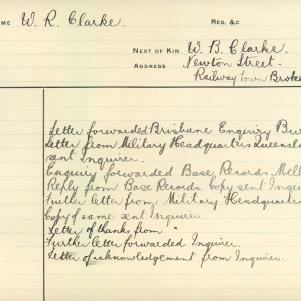 ME W. R. Clarke. REG. &C
NEXT OF KIN W. B. Clarke.
ADDRESS Newton Street.
Railway Town Broke
Letter forwarded Brisbane Enquiry Bu
Letter from Military Headquarters Queensla
sent Inquirer.
Enquiry forwarded Base Records Melb
Reply from Base Records Copy sent Inqui
Further letter from Military Headquarte
Copy of same sent Inquirer.
Letter of thanks from "
Further letter forwarded Inquirer.
Letter of acknowledgement from Inquirer.